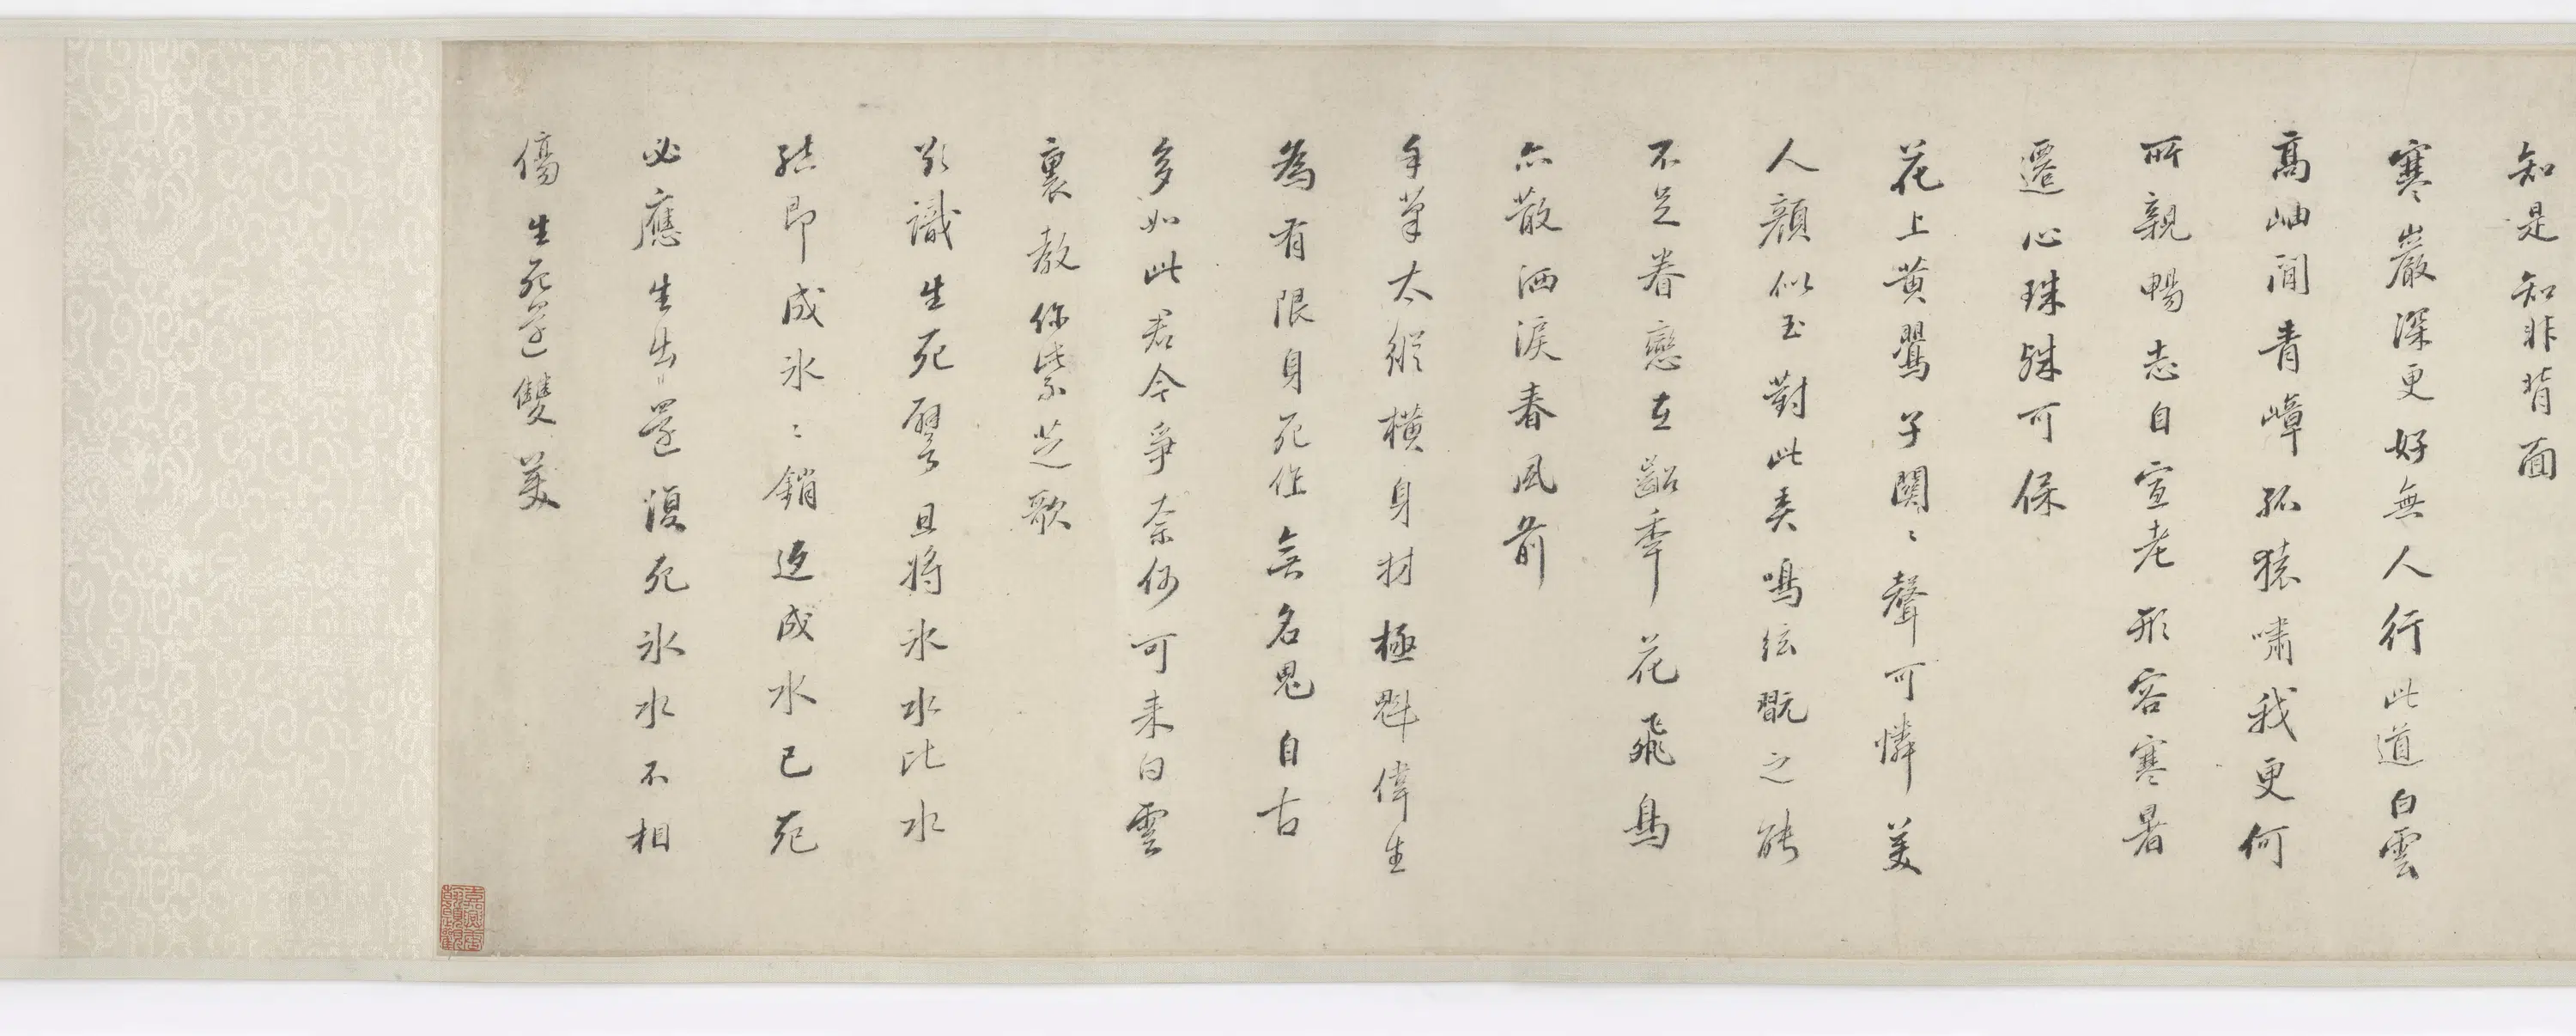 知是知非背面
寒巖深更好無人行此道白雲
高岫閒青嶂孤猿嘯我更何
所親暢志自宣老形容寒暑
遷心珠殊可保
花上黄鸎子関〻聲可憐美
人顔似玉對此弄鳴絃翫之能
不足眷戀在齠季花飛鳥
亦散洒淚春風前
手筆太縱横身材極魁偉生
為有限身死作無名鬼自古
多如此君今爭奈何可来白雲
裏教你紫芝歌
欲識生死譬且将氷水比水
結即成氷〻銷返成水已死
必應生出〻還復死氷水不相
傷生死還雙美